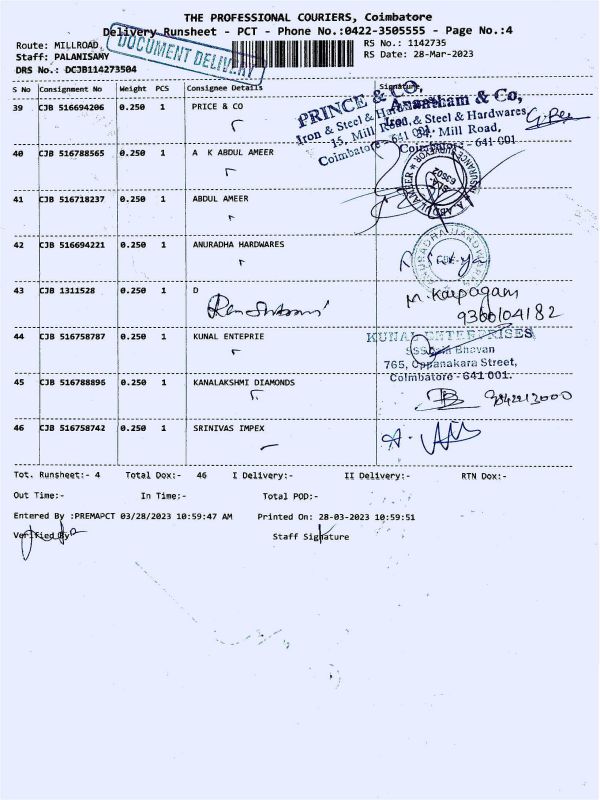 THE PROFESSIONAL COURIERS, Coimbatore
Delivery Runsheet - PCT - Phone No.:0422-3505555 - Page No.:4
Route: MILLROAD
RS No.: 1142735
Staff: PALANISAMY
RS Date: 28-Mar-2023
DRS No.: DCJB114273504
DOCUMENT DELIVERY
S No Consignment No Weight PCS Consignee Details Signature,
39 CJB 516694206 0.250 1 PRICE & CO
PRINCE & CO,
Iron & Steel & Hardwares
15, Mill Road,
Coimbatore - 641 001.
Anantham & Co,
Iron, & Steel & Hardwares
Mill Road,
Coimbatore - 641 001
40 CJB 516788565 0.250 1 A K ABDUL AMEER
41 CJB 516718237 0.250 1 ABDUL AMEER
42 CJB 516694221 0.250 1 ANURADHA HARDWARES
ANURADHA HARDWARES
43 CJB 1311528 0.250 1 D
M. Karpagam
9366104182
44 CJB 516758787 0.250 1 KUNAL ENTEPRIE
KUNAL ENTERPRISES
Bhavan
765, Oppanakara Street,
Coimbatore - 641 001.
45 CJB 516788896 0.250 1 KANALAKSHMI DIAMONDS
46 CJB 516758742 0.250 1 SRINIVAS IMPEX
Tot. Runsheet:- 4 Total Dox:- 46 I Delivery:- II Delivery:- RTN Dox:-
Out Time:- In Time:- Total POD:-
Entered By :PREMAPCT 03/28/2023 10:59:47 AM Printed On: 28-03-2023 10:59:51
Verified By Staff Signature